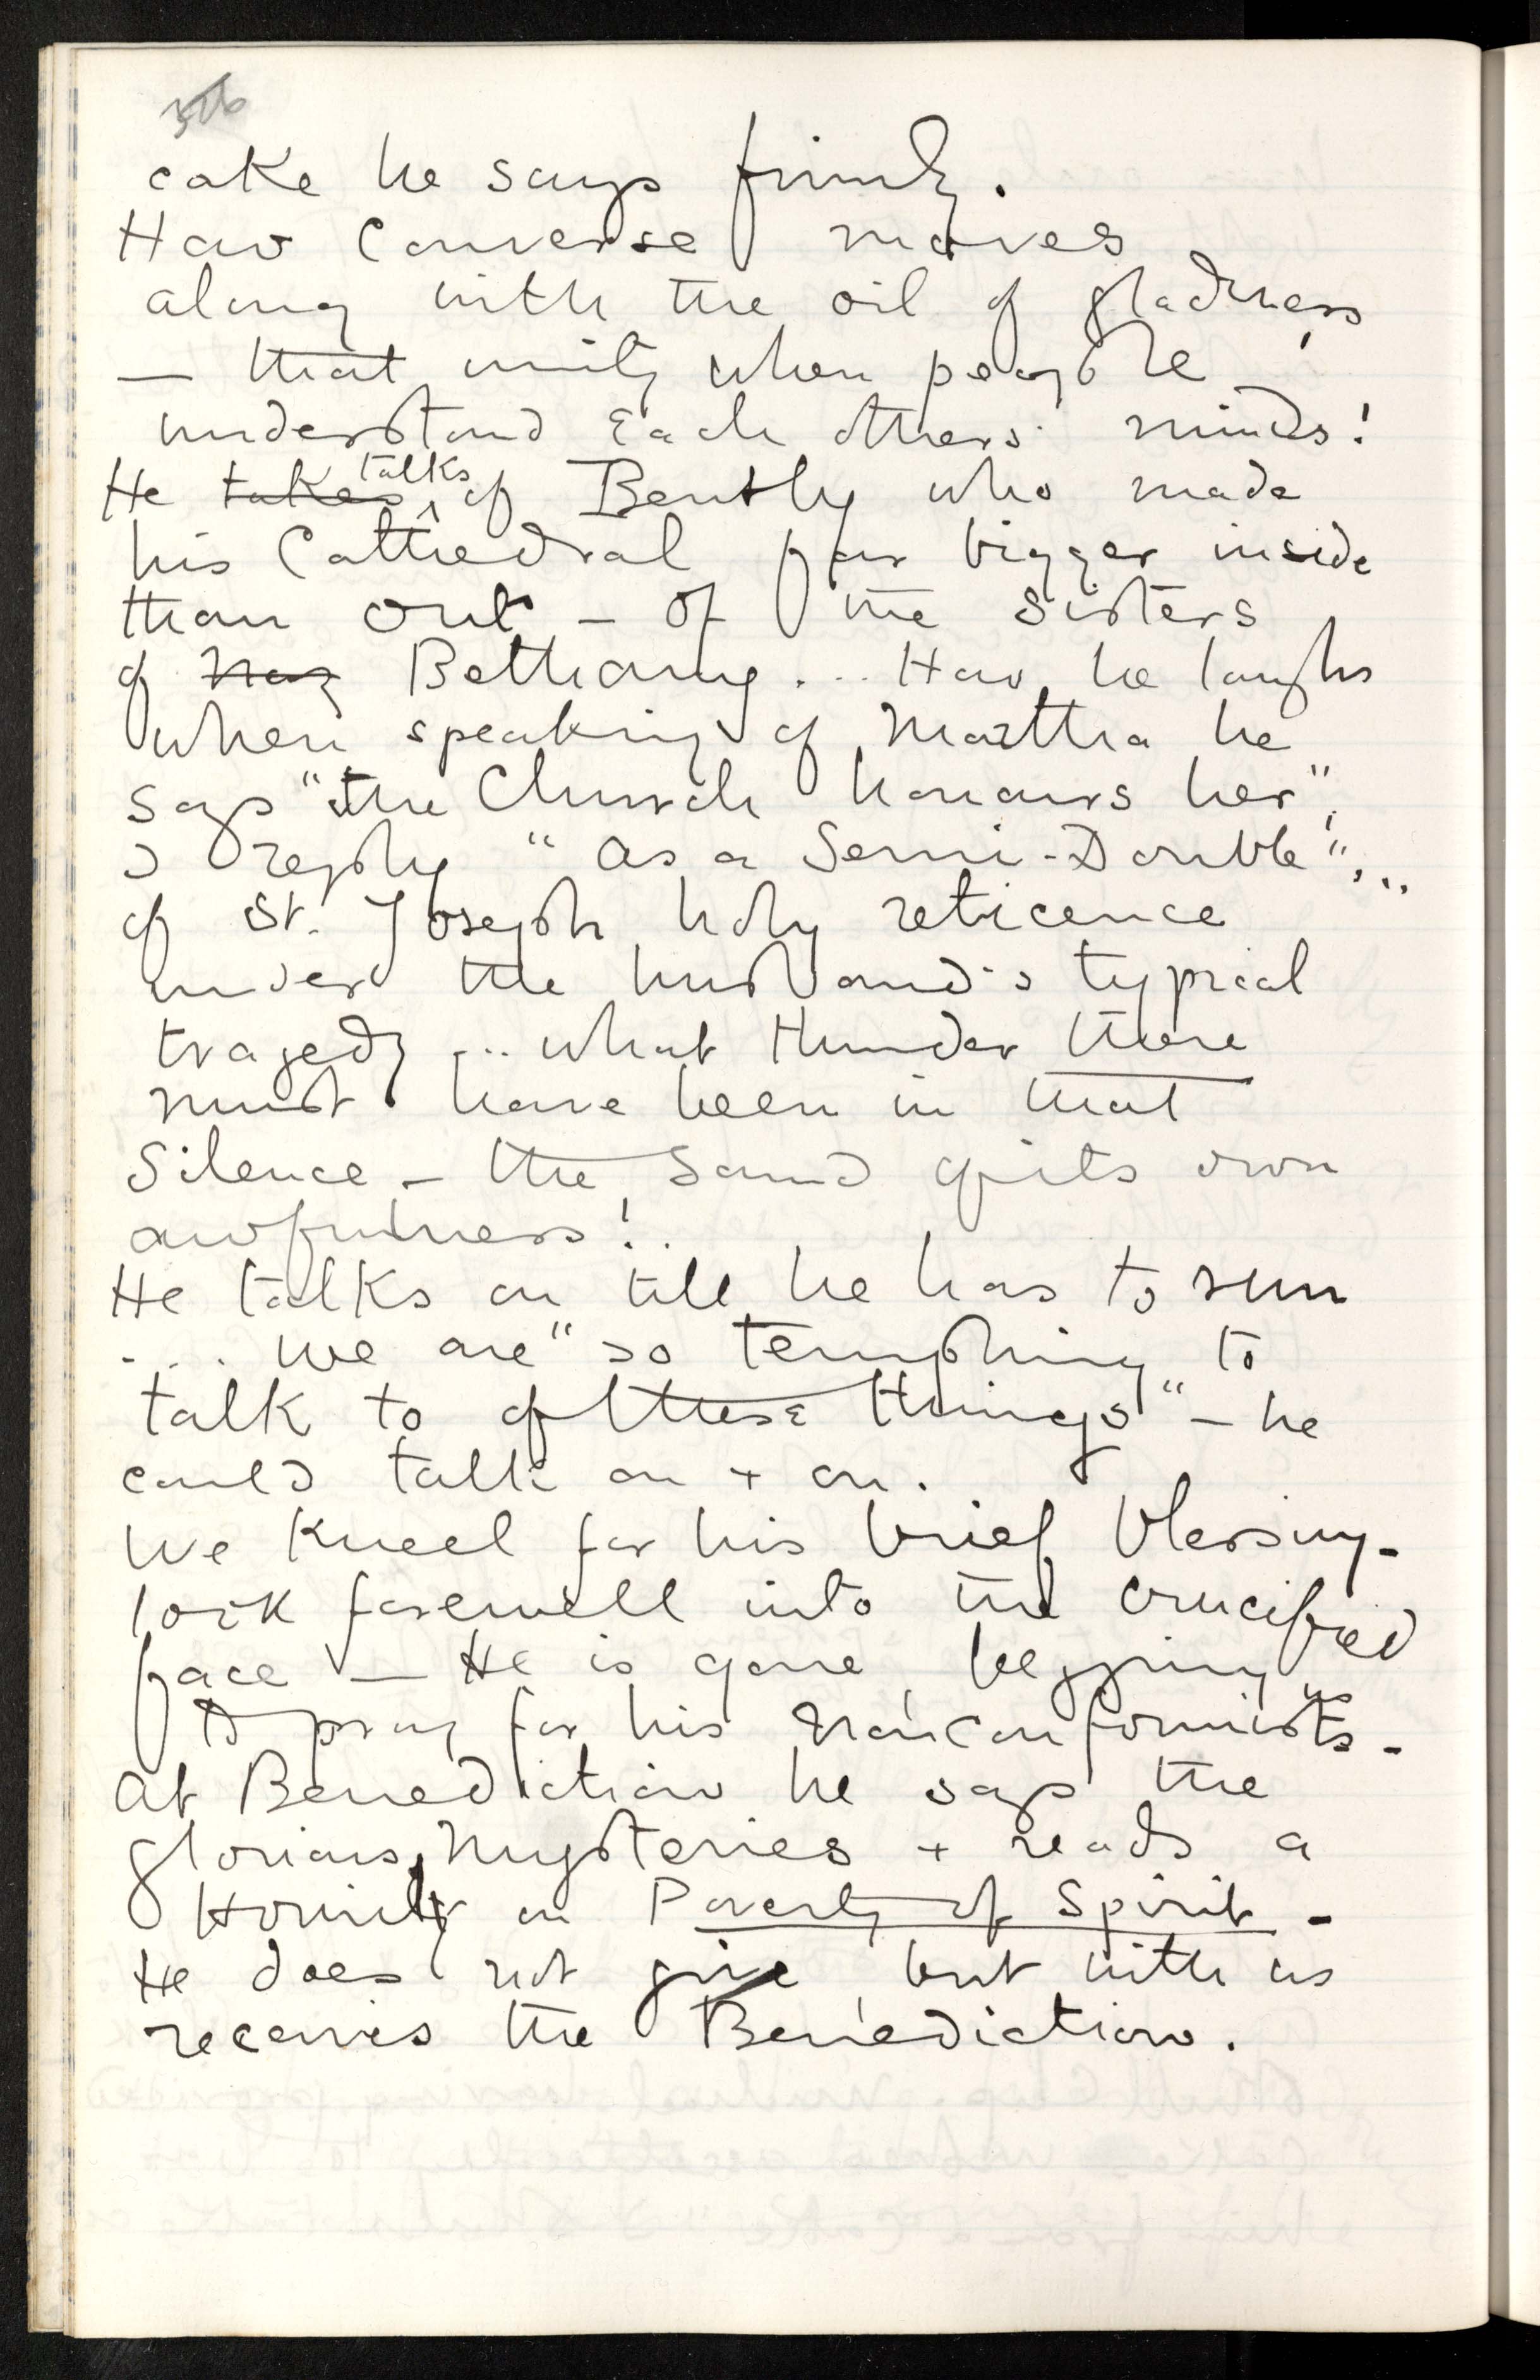 cake he says firmly.
How Converse moves
along with the oil of gladness
— that unity when people
understand each others' minds!
He takes talks of Bently who made
his Cathedral far bigger inside
than out — of the sisters
of Naz Bethany... How he laughs
when speaking of Martha he
says "the Church honours her",
I reply "as a Semi-Double"...
of St. Joseph holy reticence
under the husband's typical
tragedy ... what thunder there
must have been in that
Silence — the sound of its own
awfulness!
He talks on till he has to run
.... We are "so tempting to
talk to of these things" — he
could talk on + on.
We kneel for his brief blessing —
look farewell into the crucified
face — He is gone, begging us
to pray for his Nonconformists —
At Benediction he says the
glorious Mysteries + reads a
Homily on Poverty of Spirit —
He does not give, but with us
receives the Benediction.